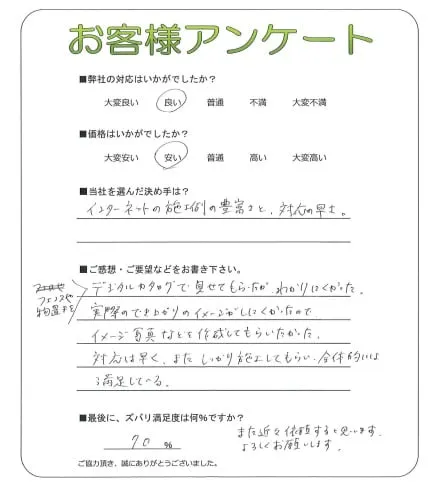 お客様アンケート
■弊社の対応はいかがでしたか?
大変良い 良い 普通 不満 大変不満
■価格はいかがでしたか?
大変安い 安い 普通 高い 大変高い
■当社を選んだ決め手は?
インターネットの施工例の豊富さと、対応の早さ。
■ご感想・ご要望などをお書き下さい。
フェンスや
物置きを
デジタルカタログで見せてもらったが、わかりにくかった。
実際のでき上がりのイメージがしにくかったので
イメージ写真などを作成してもらいたかった。
対応は早く、また しっかり施工してもらい、全体的には
満足している。
■最後に、ズバリ満足度は何%ですか?
70 %
また近々依頼すると思います。
よろしくお願いします。
ご協力頂き、誠にありがとうございました。